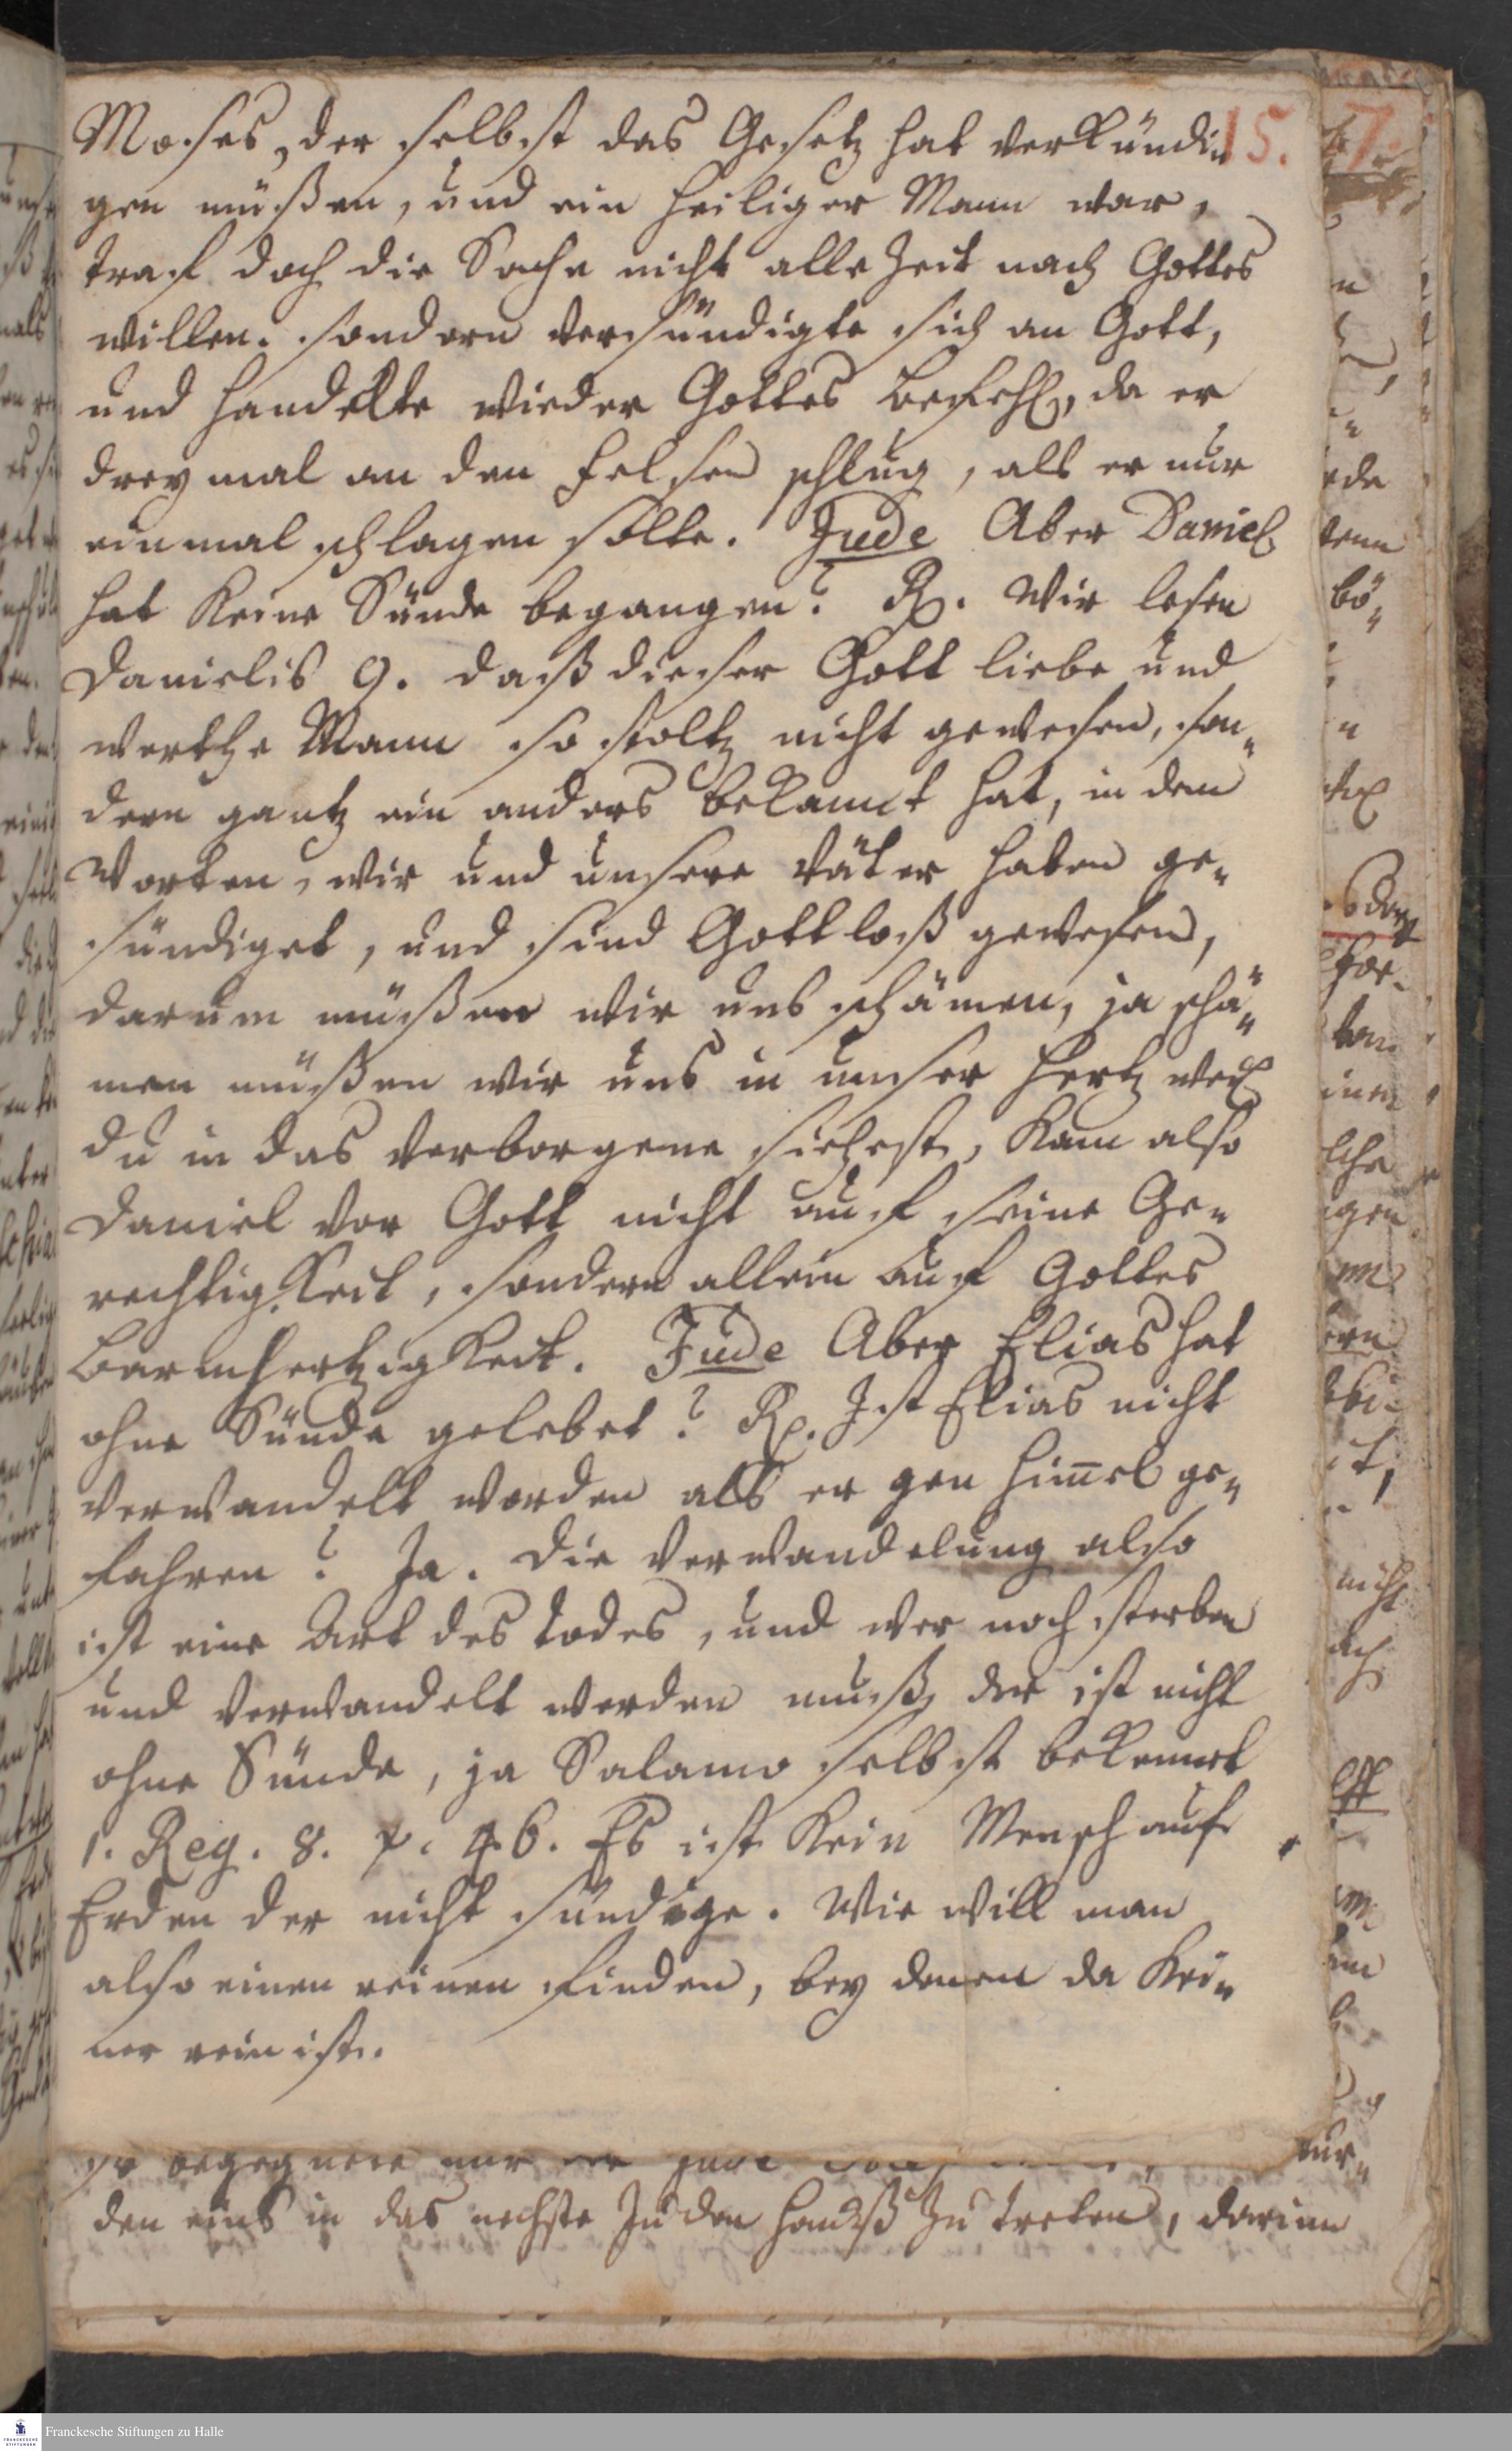 Moses, der selbst das Gesetz hat verkündi„ 15.
gen müßen, und ein heiliger Mann war,
traf doch die Sache nicht alle Zeit nach Gottes
willen. sondern versündigte sich an Gott,
und handelte wieder Gottes Befehl, da er
drey mal an den Felsen schlug, als er nur
ein mal schlagen solte. Jude Aber Daniel
hat keine Sünde begangen? R. Wir lesen
Danielis 9. daß dieser Gott liebe und
werthe Mann so stoltz nicht gewesen, son„
dern gantz ein anders bekannt hat, in dem
Worten, wir und unsere Väter haben ge„
sündiget, und sind Gottloß gewesen,
darum müßen wir uns schämen, ja schä„
men müßen wir uns in unser Hertz weil
du in das verborgene siehest, kam also
Daniel vor Gott nicht auf seine Ge„
rechtigkeit, sondern allein auf Gottes
Barmhertzigkeit. Jude Aber Elias hat
ohne Sünde gelebet? R. Ist Elias nicht
verwandelt worden als er gen Him̅el ge„
fahren? Ja. Die Verwandelung also
ist eine Art des todes, und wer noch sterben
und verwandelt werden muß, der ist nicht
ohne Sünde, ja Salamo selbst bekennet
1. Reg. 8. v. 46. Es ist kein Mensch auf
Erden der nicht sündige. Wie will man
also einen reinen finden, bey denen da kei„
ner rein ist.
so begegnete mir der Jude
den uns in das nechste Juden Hauß zu treten, darinn
Franckesche Stiftungen zu Halle